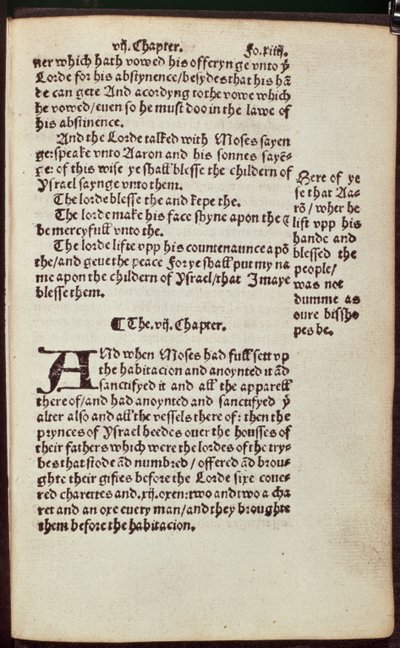 vij. Chapter. Fo. xiiij.
ner which hath vowed his offerynge vnto ẏ
Lorde for his abstynence/besydes that his hā
de can gete And acordyng to the vowe which
he vowed/even so he must doo in the lawe of
his abstinence.
And the Lorde talked with Moses sayen
ge: speake vnto Aaron and his sonnes sayē-
ge: of this wise ye shall blesse the childern of
Ysrael saynge vnto them.
The lorde blesse the and kepe the.
The lorde make his face shyne apon the &
be mercyfull vnto the.
The lorde lifte vpp his countenaunce apō
the/and geue the peace For ye shall put my na
me apon the childern of Ysrael/that I maye
blesse them.
Here of ye
se that Aa-
rō/wher he
lift vpp his
hande and
blessed the
people/
was not
dumme as
oure bissho
pes be.
¶ The. vij. Chapter.
ANd when Moses had full sett vp
the habitacion and anoynted it ād
sanctifyed it and all the apparell
there of/and had anoynted and sanctifyed ẏ
alter also and all the vessels there of: then the
prynces of Ysrael heedes ouer the housses of
their fathers which were the lordes of the try-
bes that stode ād numbred/offered ād brou-
ghte their giftes before the Lorde sixe coue-
red charettes and. xij. oxen: two and two a cha
ret and an oxe euery man/and they broughte
them before the habitacion.